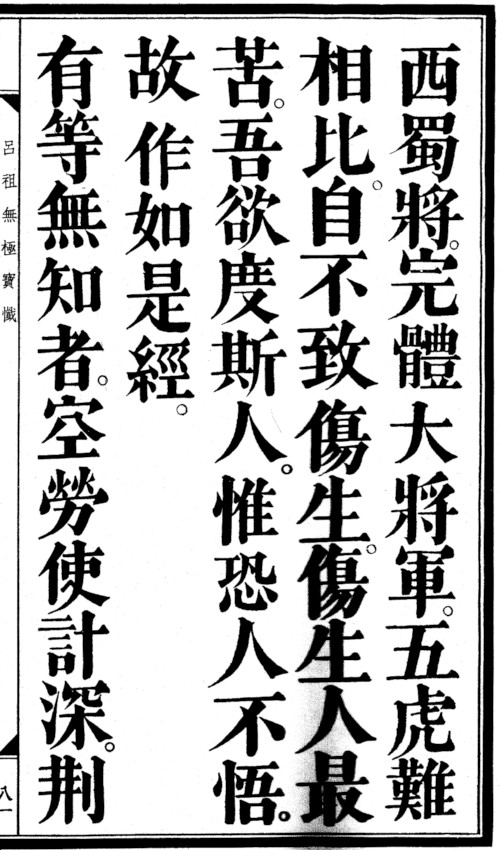 西蜀將。完體大將軍。五虎難
相比。自不致傷生。傷生人最
苦。吾欲度斯人。惟恐人不悟。
故作如是經。
有等無知者。空勞使計深。荆
呂祖無極寶懺